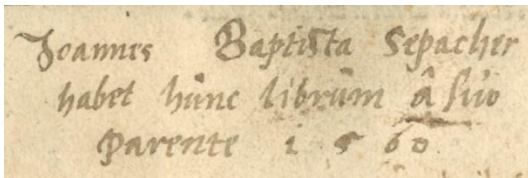 Joannes Baptista Sepacher
habet hûnc librûm â sûo
Parente 1560